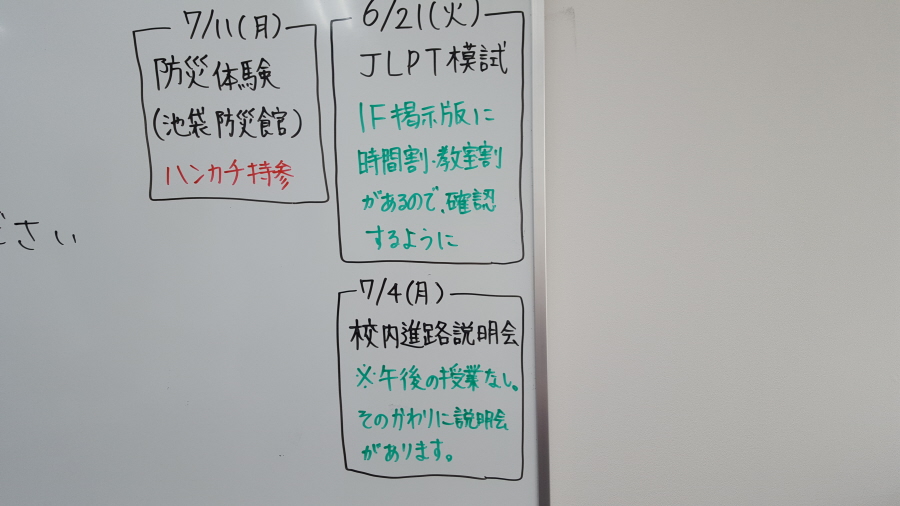 6/21(火)
JLPT模試
1F掲示版に
時間割・教室割
があるので、確認
するように
7/4(月)
校内進路説明会
※午後の授業なし。
そのかわりに説明会
があります。
7/11(月)
防災体験
(池袋防災館)
ハンカチ持参
ださい